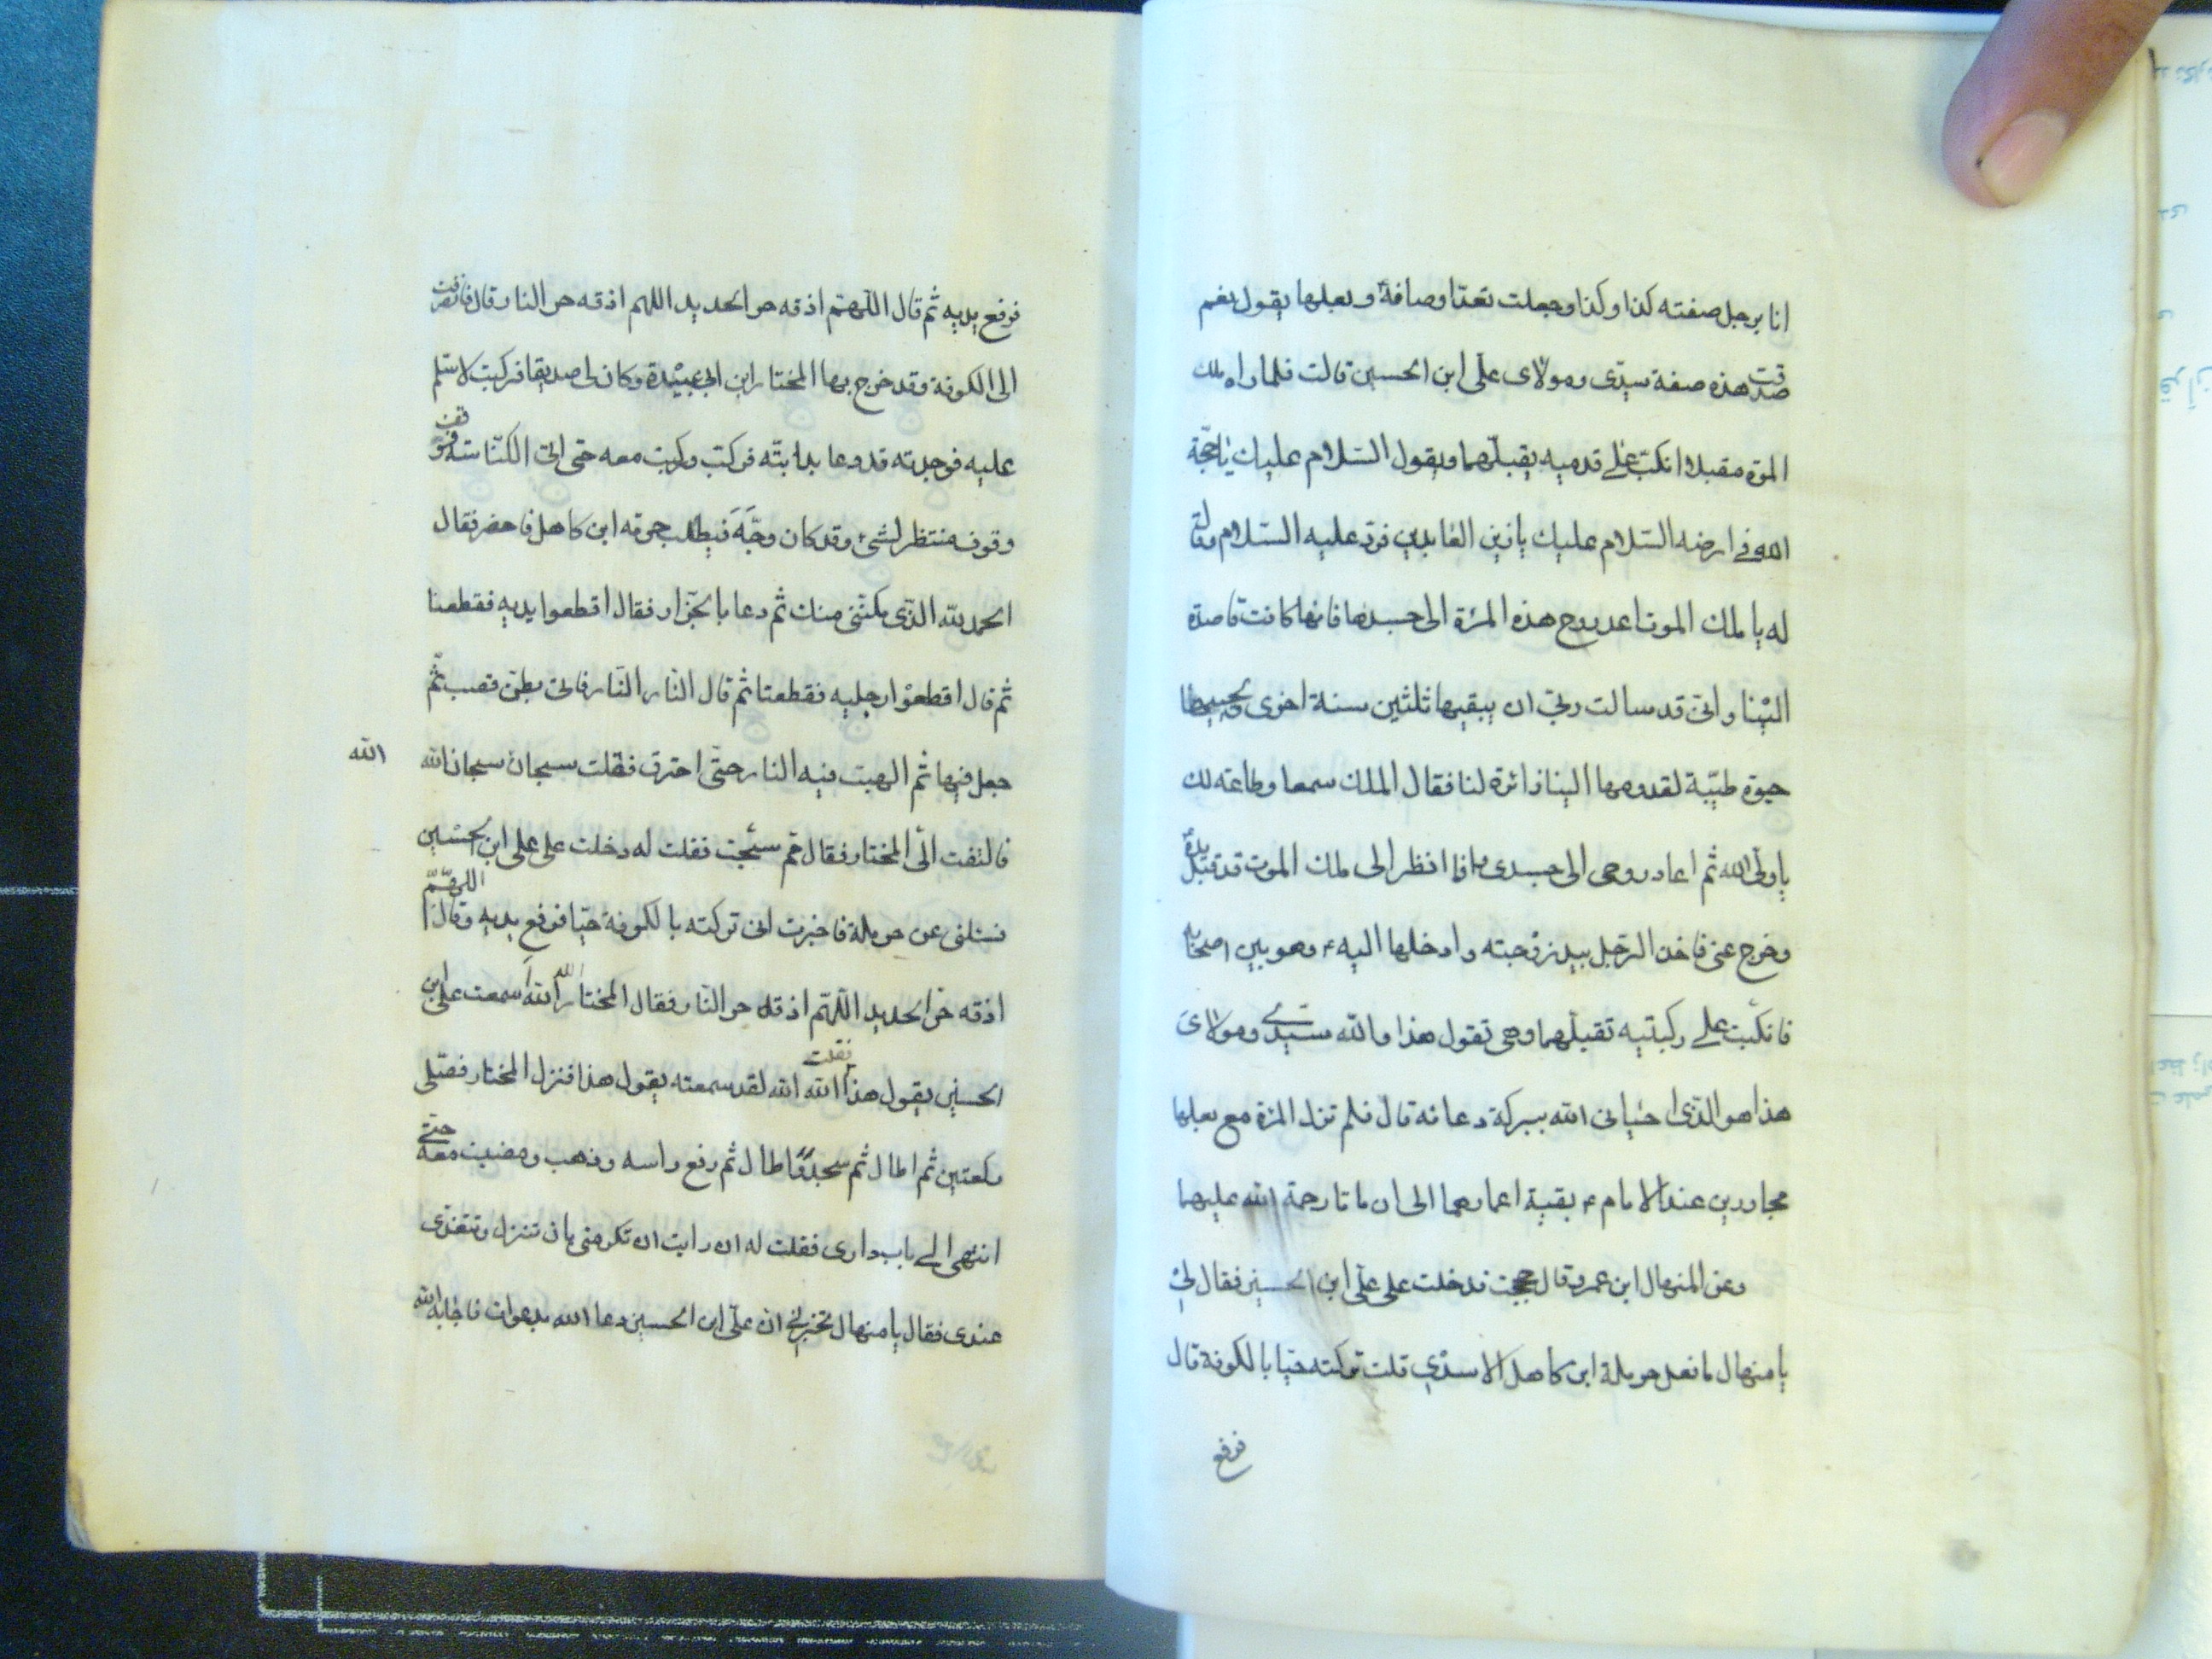 انا برجل صفته كذا وكذا وجعلت تعدّ اوصافه وبعلها يقول نعم
صدقت هذه صفة سيّدى ومولاى علّى ابن الحسين قالت فلما راه ملك
الموة مقبلا انكبّ على قدميه يقبلّهما ويقول السّلام عليك يا حجّة
الله فى ارضه السّلام عليك يا زين العابدين فردّ عليه السّلام وقال
له يا ملك الموت اعد روح هذه المرئة الى جسدها فانها كانت قاصدة
الينا وانّى قد سالت ربّى ان يبقيها ثلثين سنة اخرى ويحييها
حيوة طيّبة لقدومها الينا زائرة لنا فقال الملك سمعا وطاعة لك
يا ولّى الله ثم اعاد روحى الى جسدى وانا انظر الى ملك الموت قد قبّل يده
وخرج عنى فاخذ الرّجل بيد زوجته وادخلها اليه ع وهو بين اصحابه
فانكبّت على ركبتيه تقبلّهما وهى تقول هذا والله سيّدى ومولاى
هذا هو الذّى احيانى الله ببركة دعائه قال فلم تزل المرئة مع بعلها
مجاورين عند الامام ع بقية اعمارهما الى ان ماتا رحمة الله عليهما
وعن المنهال ابن عمرو قال حججت فدخلت على علّى ابن الحسين فقال لى
يا منهال ما فعل حرملة ابن كاهل الاسدّى قلت تركته حيّا بالكوفة قال
فرفع
فرفع يديه ثم قال اللّهمّ اذقه حر الحديد اللهم اذقه حر النار قال فانصرفت
الى الكوفة وقد خرج بها المختار ابن ابى عبيدة وكان لى صديقا فركبت لاسلّم
عليه فوجدته قد دعا بدابتّه فركب وركبت معه حتى اتى الكنّاسة فوقف
وقوف منتظر لشئ وقد كان وجّه فى طلب حرملة ابن كاهل فاحضر فقال
الحمد لله الذّى مكنّنى منك ثم دعا بالجزّار فقال اقطعوا يديه فقطعتا
ثم قال اقطعوا رجليه فقطعتا ثم قال النّار النّار فاتى بطنّ قصب ثّم
جعل فيها ثم الهبت فيه النار حتّى احترق فقلت سبحان سبحان الله
الله
فالتفت الّى المختار فقال مّم سبّحت فقلت له دخلت على على ابن الحسين
فسئلنى عن حرملة فاخبرت انى تركته بالكوفة حيّا فرفع يديه وقال اللهّمّ
اذقه حرّ الحديد اللّهمّ اذقه حر النّار فقال المختار الله الله اسمعت على ابن
الحسين يقول هذا فقلت الله الله لقد سمعته يقول هذا فنزل المختار فصلى
ركعتين ثم اطال ثم سجد واطال ثم رفع راسه وذهب ومضيت معه حتى
انتهى الى باب دارى فقلت له ان رايت ان تكرمنى بان تنزل وتتغدّى
عندى فقال يا منهال تخبرنى ان علّى ابن الحسين دعا الله بدعوات فاجابه الله